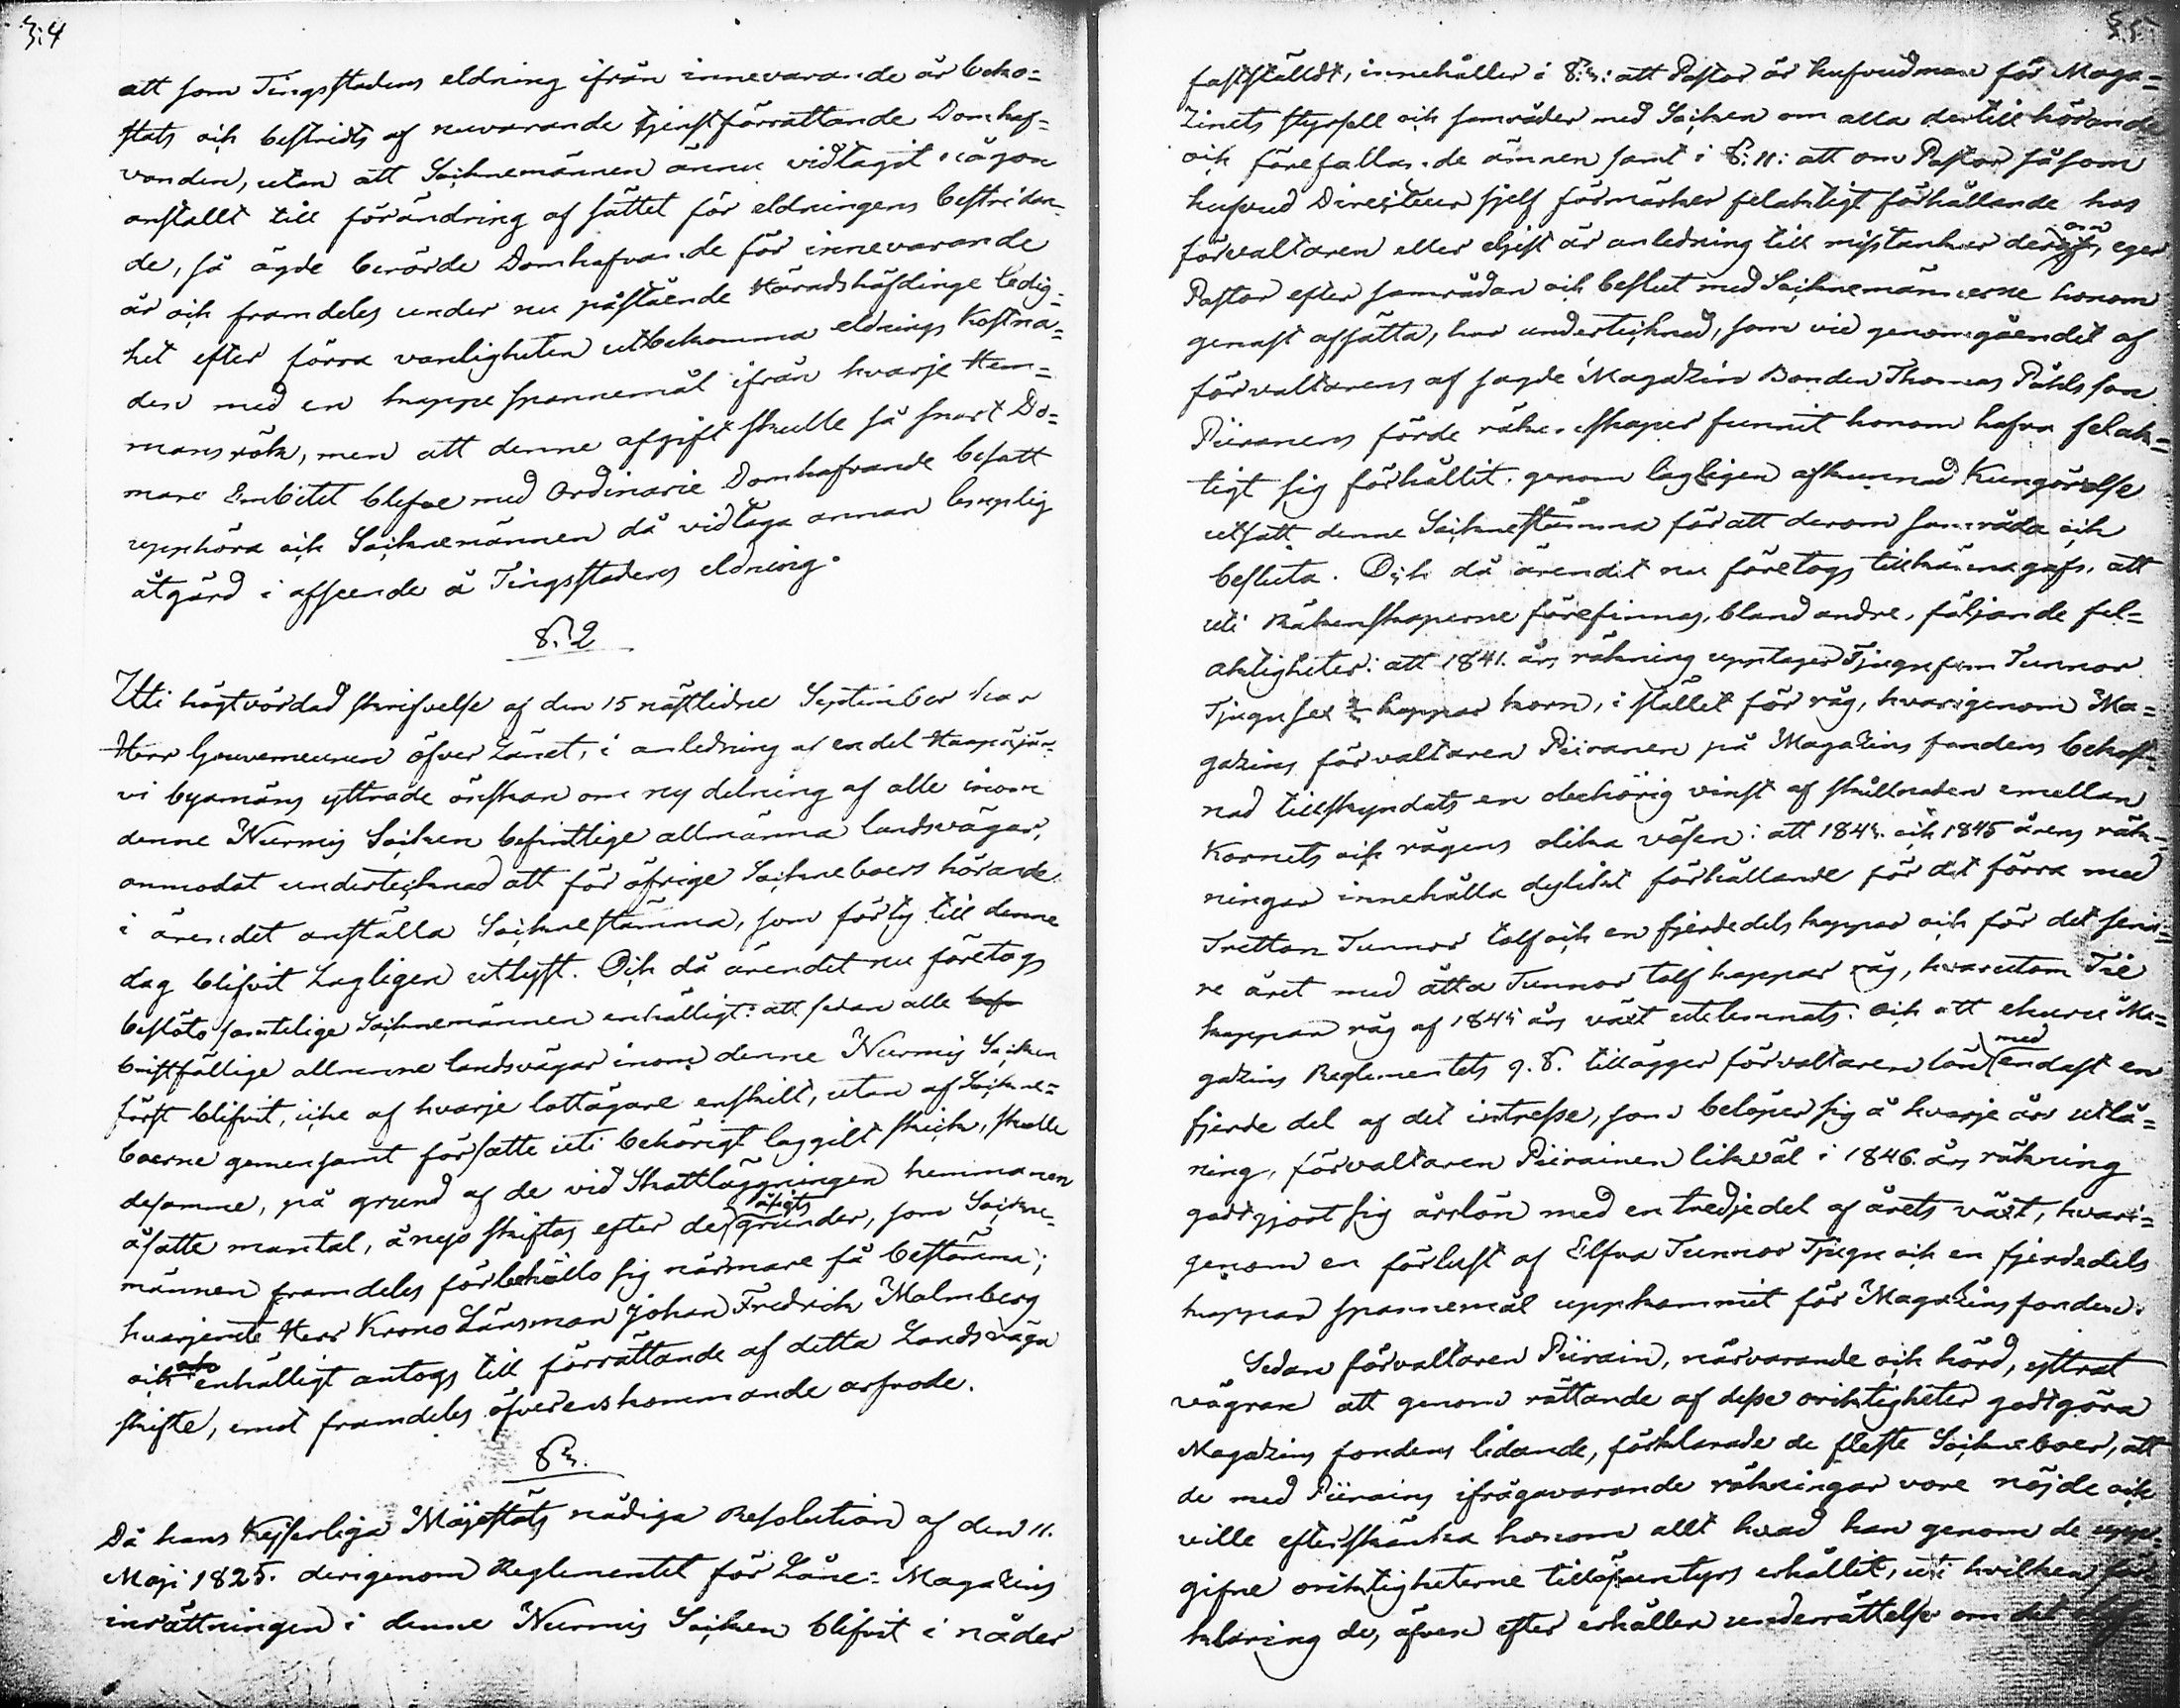 34
att som Tingsstadens eldning ifrån innevarande år beko=
stats och bestridts af nuvarande tjenstförrättande Domhaf=
vanden, utan att Socknemännen ännu vidtagit någon
anstallt till förändring af sättet för eldningens bestridan=
de, så ägde berörde Domhafvande för innevarande
år och framdeles under nu påstående Häradshöfdinge ledig=
het efter förra vanligheten utbekomma eldnings kostna=
den med en kappe spannemål ifrån hvarje Hem=
mansrök, men att denne afgift skulle så snart Do=
mare Embetet blefve med Ordinarie Domhafvande besatt
upphöra och Sockenemännen då vidtaga annan lämplig
åtgärd i afseende å Tingsstadens eldning.
§. 2
Uti högtvördad skrifvelse af den 15 nästledne September har
Herr Gouverneuren öfver Länet, i anledning af en del Haapajär=
vi byamäns yttrade önskan om ny delning af alle inom
denne Nurmis Socken befintlige allmänna landsvägar,
anmodat undertecknad att för öfrige Sockneboers hörande
i ärendet anställa Socknestämma, som förty till denne
dag blifvit Lagligen utlyst. Och då ärendet nu företogs
beslöts samtelige Socknemännen enhälligt: att sedan alle
bristfällige allmänne landsvägar inom denne Nurmis Socken
först blifvit, icke af hvarje lottägare enskilt, utan af Sockne=
boerne gemensamt försatte uti behörigt laggilt skick, skulle
desamme, på grund af de vid Skattläggningen hemmanen
åsatte mantal, ånyo skiftas efter de grunder, som Sockne=
männen framdeles förbehållo sig närmare få bestämma;
hvarjemte Herr Krono Länsman Johan Fredrik Malmberg
och enhälligt antogs till förrättande af detta Landsväga
skifte, emot framdeles öfverenskommande arfvode.
§ 3.
Då hans Kejserliga Majestäts nådiga Resolution af den 11.
Maji 1825. derigenom Reglementet för Låne=Magazins
inrättningen i denne Nurmis Socken blifvit i nåder
35
fastställdt, innehåller i §:3: att Pastor är hufvudman för Maga=
zinets styrsell och samråder med Socken om alla dertill hörande
och förefallande ämnen samt i §:11: att om Pastor såsom
hufvud Directeur sjelf förmärker felaktigt förhållande hos
förvaltaren eller eljest är anledning till misstankar derom, eger
Pastor efter samrådan och beslut med Socknemännerne honom
genast afsätta, har undertecknad, som vid genomgåendet af
förvaltarens af sagde Magazin Bonden Thomas Påhlsson
Piiranens förde räkenskaper funnit honom hafva felak=
tigt sig förhållit, genom lagligen afkunnad Kungörelse
utsatt denne Socknestämma för att derom samråda och
besluta. Och då ärendet nu företogs tillkännagafs, att
uti Räkenskaperne förefinnas, bland andre, följande fel=
aktigheter: att 1841. års räkning upptager Tjugufem Tunnor
Tjugusex kappar korn, i stället för råg, hvarigenom Ma=
gazins förvaltaren Piiranen på Magazins fondens bekost=
nad tillskyndats en obehörig vinst af skillnaden emellan
Kornets och rågens olika väsen: att 1844. och 1845 årens räk=
ningar innehålla dylikt förhållande för det förra med
Tretton Tunnor tolf och en fjerdedels kappar och för det sena=
re året med åtta Tunnor tolf kappar råg, hvarutom Tie
kappar råg af 1844 års växt utelemnats: och att ehuru Ma=
gazins Reglementets 9. §. tillägger förvaltaren lön med endast en
fjerde del af det intresse, som belöper sig å hvarje års utlå=
ning, förvaltaren Piirainen likväl i 1846. års räkning
godtgjort sig årslön med en tredjedel af årets växt, hvari=
genom en förlust af Elfva Tunnor Tjugu och en fjerdedels
kappar spannemål uppkommit för Magazins fonden.
Sedan förvaltaren Piirain, närvarande och hörd, yttrat
vägran att genom rättande af desse oriktigheter godtgöra
Magazins fondens lidande, förklarade de fleste Sockneboer, att
de med Piirains ifrågavarande räkningar vore nöjde och
ville efterskänka honom allt hvad han genom de upp=
gifne oriktigheterne tilläfventyrs erhållit, uti hvilken för=
klaring de, äfven efter erhållen underrättelse om det